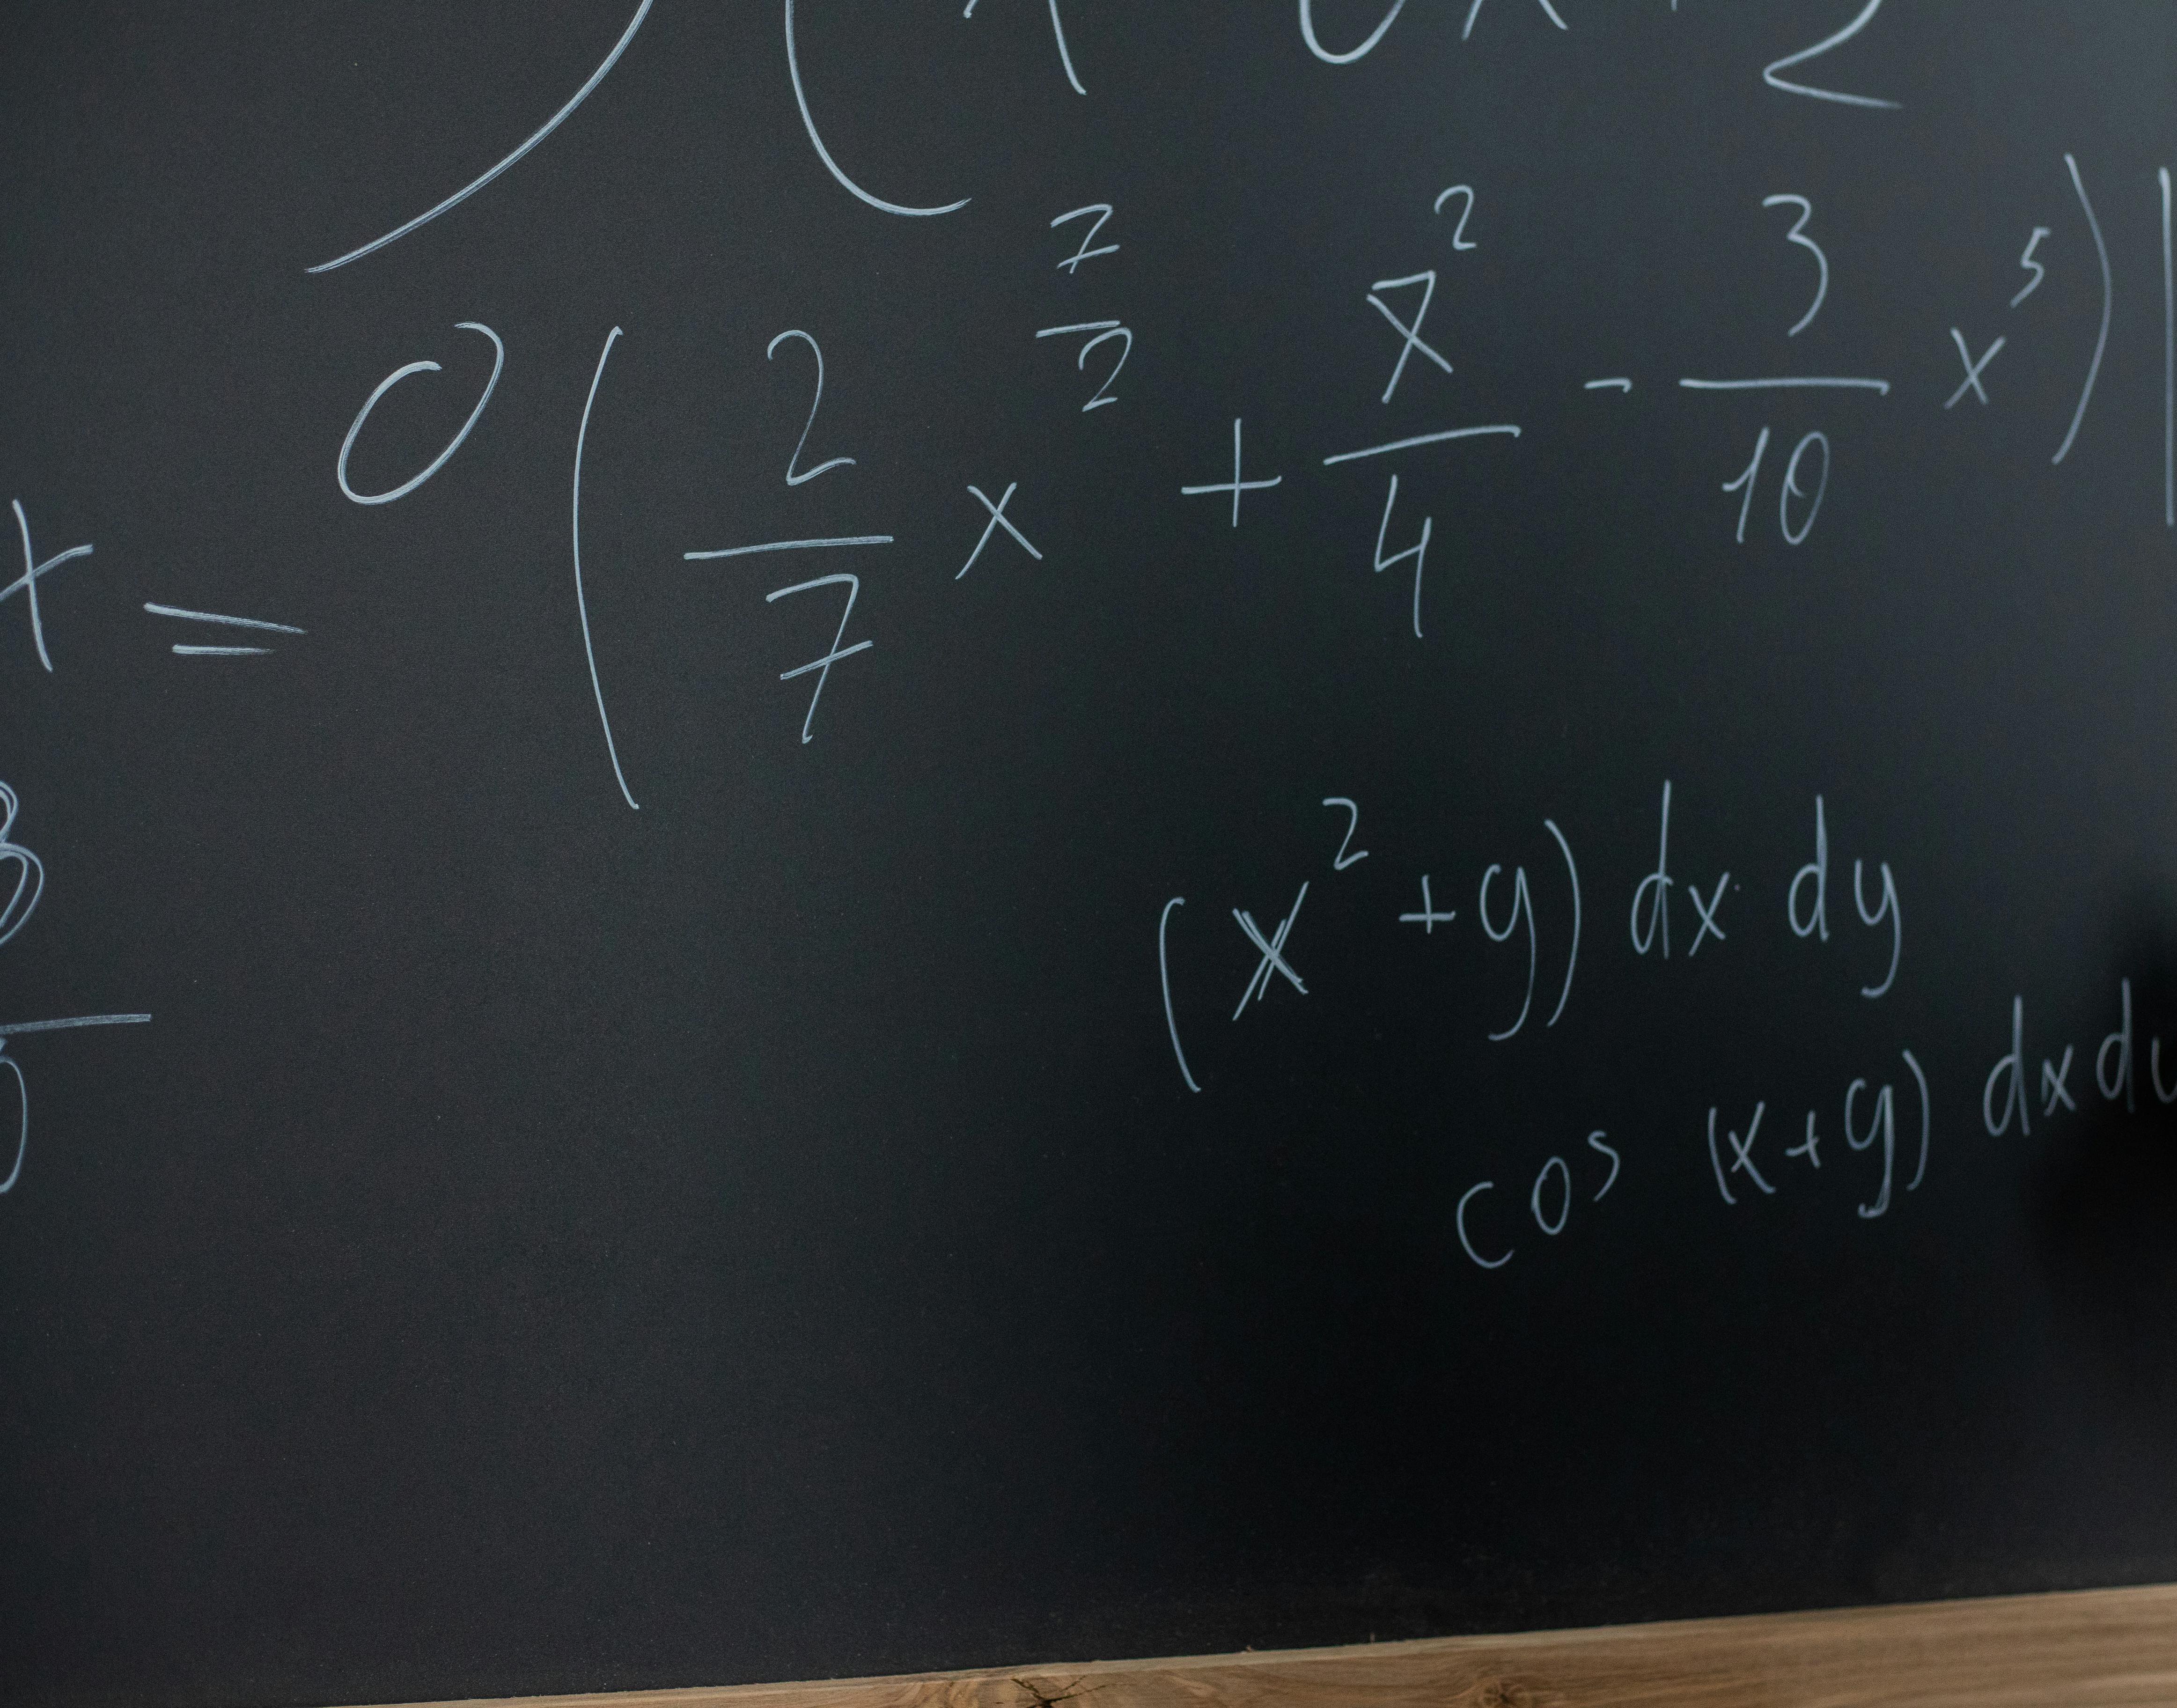 = 0 ( 2/7 x^(7/2) + x^2/4 - 3/10 x^5 ) |
(x^2 + y) dx dy
cos (x+y) dx dy